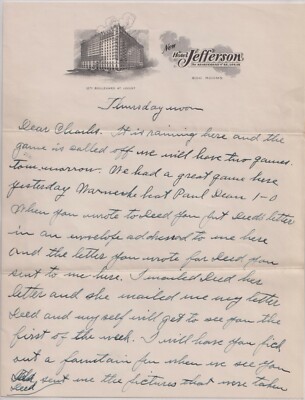 New
Hotel
Jefferson
12TH BOULEVARD AT LOCUST
Thursday noon
Dear Charles. It is raining here and the
game is called off we will have two games
tommorrow. We had a great game here
yesterday Warneke beat Paul Dean 1-0
When you wrote to Deed you put Deeds letter
in an envelope addressed to me here
and the letter you wrote for Deed you
sent to me here. I mailed Deed her
letter and she mailed me my letter
Deed and myself will get to see you the
first of the week. I will have you pick
out a fountain pen when we see you
Deed sent me the pictures that were taken